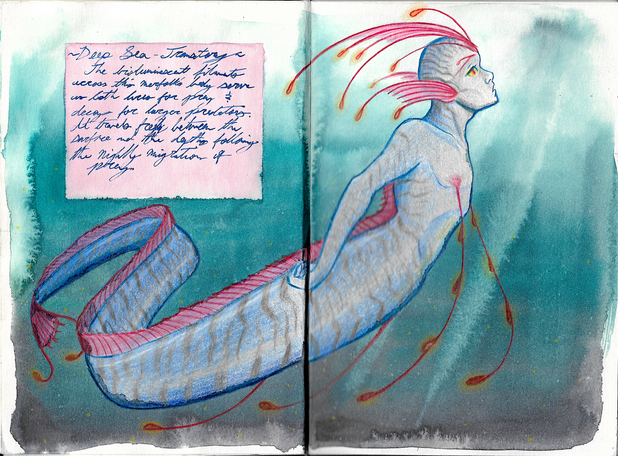 ~Deep Sea - Transitory~
The bioluminescent filaments
across this merfolk's body serve
as both lures for prey &
decoys for larger predators.
It travels freely between the
surface and the depths following
the nightly migration of
prey.